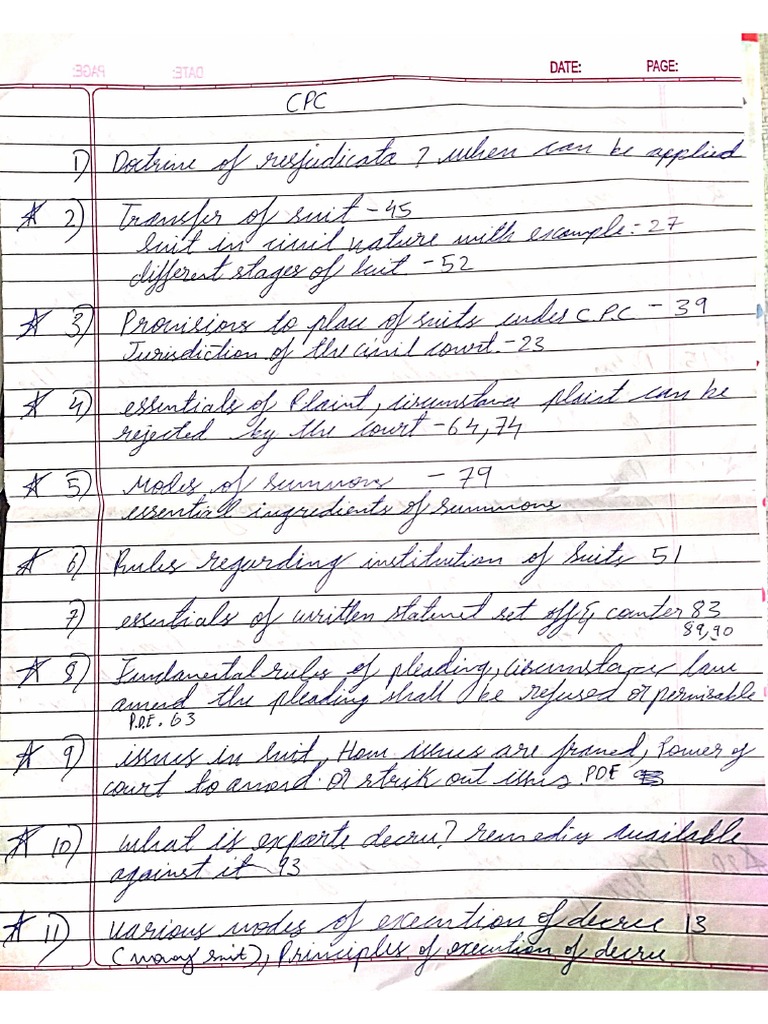 DATE: PAGE:
CPC
1) Doctrine of resjudicata ? when can be applied
☆ 2) Transfer of suit - 45
suit in civil nature with example:- 27
different stages of suit. - 52
☆ 3) Provisions to place of suits under C.P.C - 39
Jurisdiction of the civil court. - 23
☆ 4) essentials of Plaint, circumstance plaint can be
rejected by the court - 64, 74
☆ 5) Modes of summons - 79
essential ingredients of summons
☆ 6) Rules regarding institution of suits 51
7) essentials of written statemet set off & counter 83
89,90
☆ 8) Fundamental rules of pleading, circumstance law
amend the pleading shall be refused or permisable
P.D.F. 63
☆ 9) issues in suit, How issues are framed, Power of
court to amend or strik out issues. PDF
☆ 10) what is exparte decree? remedies available
against it 93
☆ 11) various modes of execution of decree 13
(money suit), Principles of execution of decree